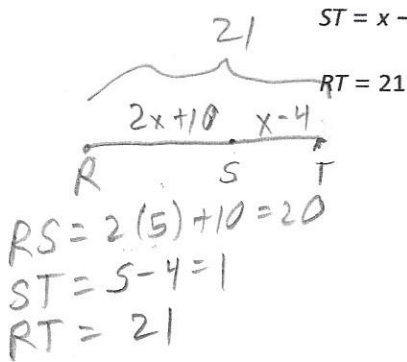 ST = x –
21
RT = 21
2x+10 x-4
R S T
RS = 2(5)+10 = 20
ST = 5-4 = 1
RT = 21